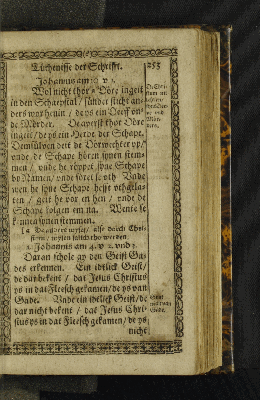 Tüchenisse der Schrifft. 253
Johannis am 10. v. 1.
Wol nicht thor Döre ingeit
in den Schaepstal / sünder sticht an=
ders wor henin / de ys ein Deeff vn=
de Mörder. De averst thor Döre
ingeit / de ys ein Herde der Schape.
Demsülven deit de Dörwechter vp /
vnde de Schape hören synen stem=
men / vnde he röppet syne Schape
by Namen / vnde föret se vth. Vnde
wen he syne Schape hefft vthgelas=
ten / geit he vor en hen / vnde de
Schape folgen em na. Wente se
kennen synen stemmen.
1. Johannis am 4. v. 2. vnd 3.
Daran schole gy den Geist Ga=
des erkennen. Ein idtlick Geist /
de dar bekent / dat Jesus Christus
ys in dat Fleesch gekamen / de ys van
Gade. Vnde ein idtlick Geist / de
dar nicht bekent / dat Jesus Chri=
stus ys in dat Fleesch gekamen / de ys
nicht